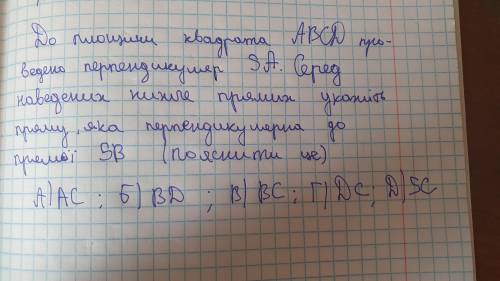 До площини квадрата ABCD про-
ведено перпендикуляр SA. Серед
наведених нижче прямих укажіть
пряму, яка перпендикулярна до
прямої SB (пояснити це)
А) AC ; Б) BD ; В) BC ; Г) DC ; Д) SC